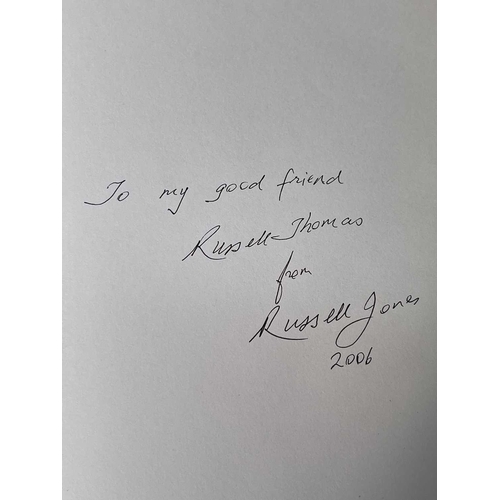 To my good friend
Russell Thomas
from
Russell Jones
2006